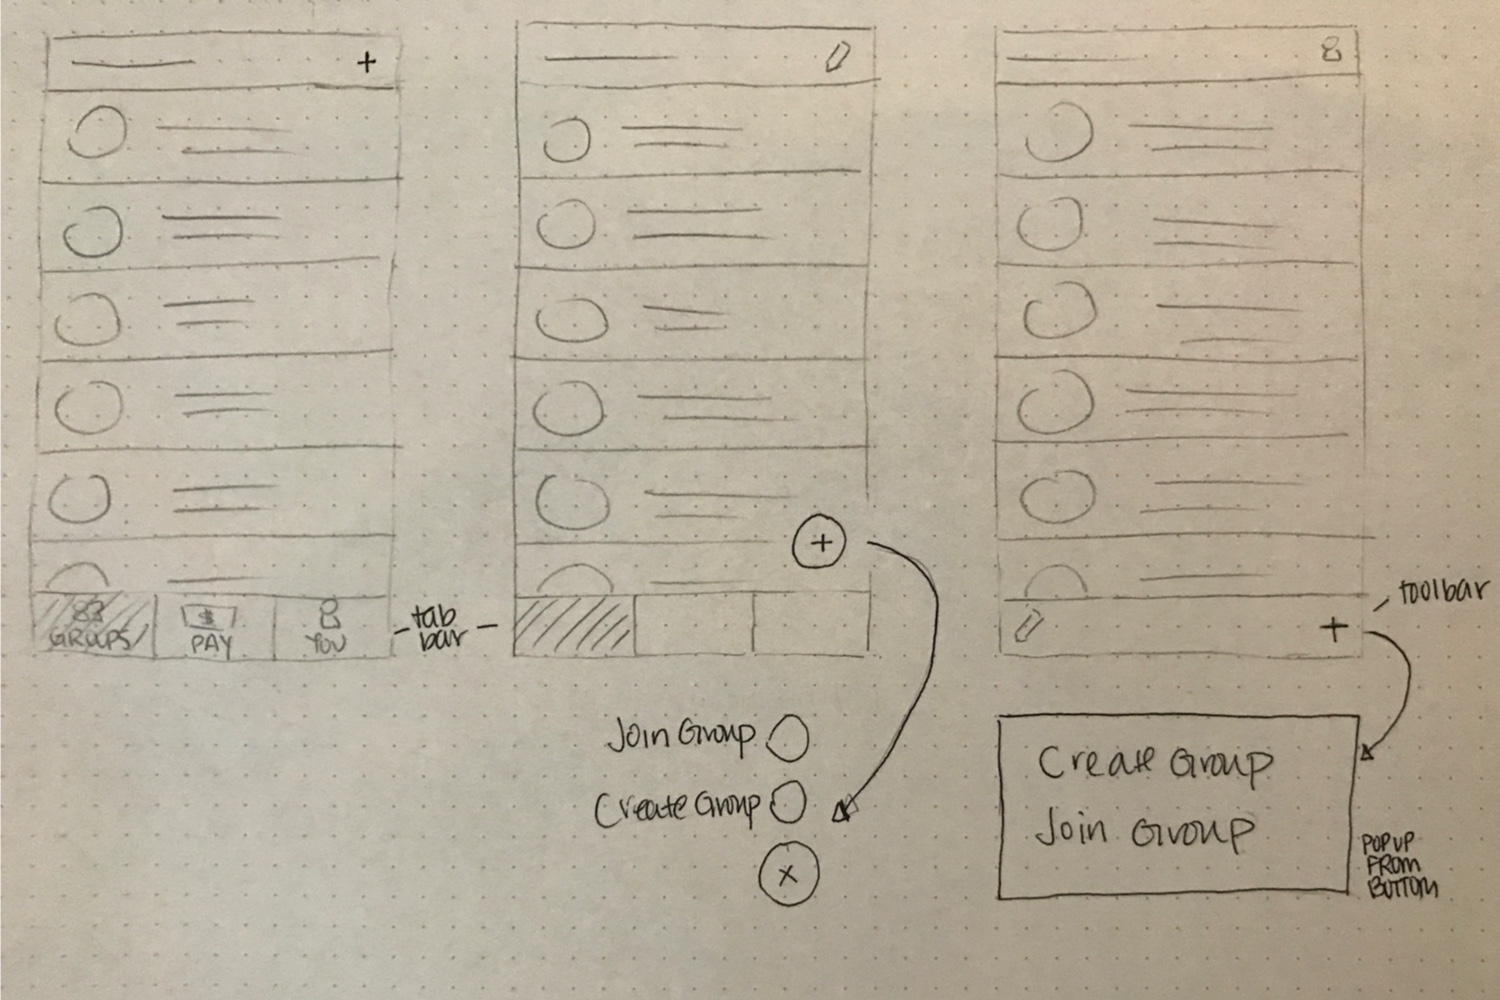 +
GROUPS
$
PAY
YOU
tab
bar
+
Join Group
Create Group
x
toolbar
+
Create Group
Join Group
POP UP
FROM
BOTTOM